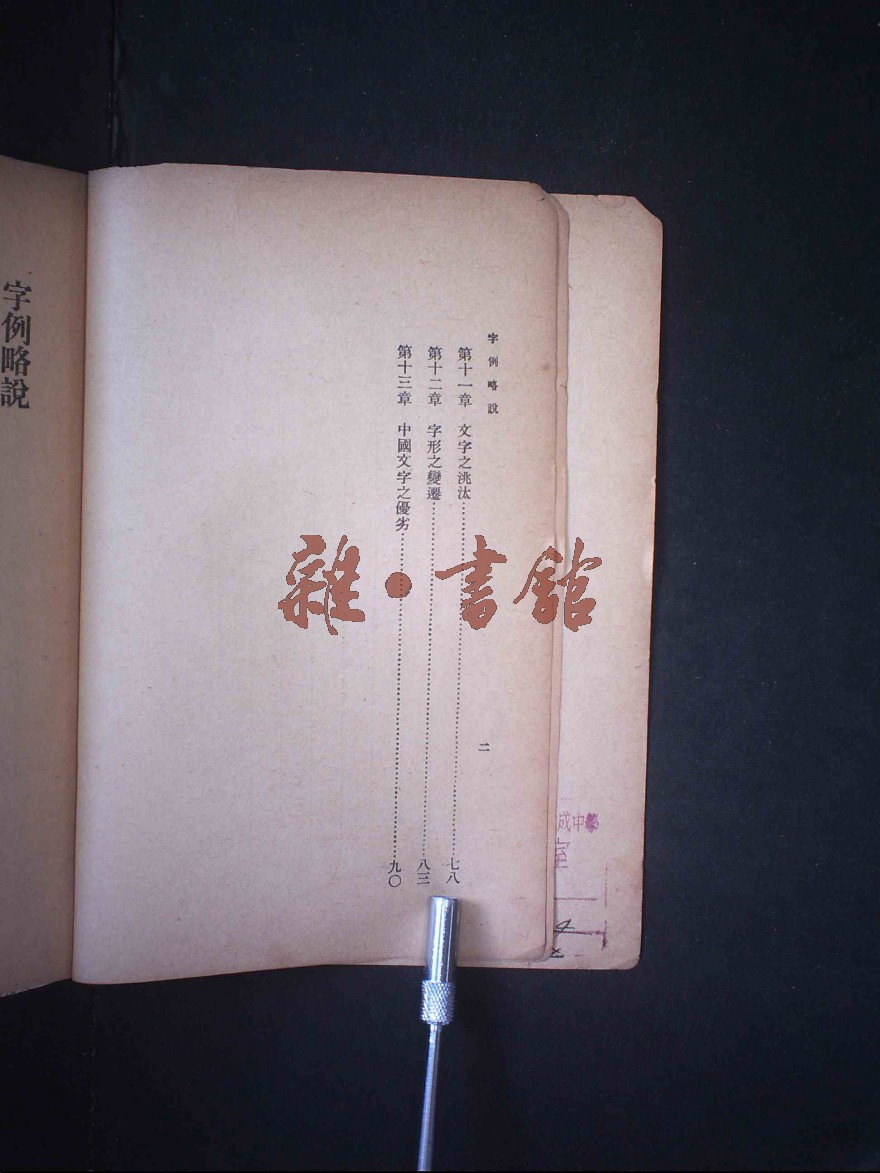 字例略說
第十一章　文字之洮汰……七八
第十二章　字形之變遷……八三
第十三章　中國文字之優劣……九〇
二
字例略說
雜·書館
成中學
室